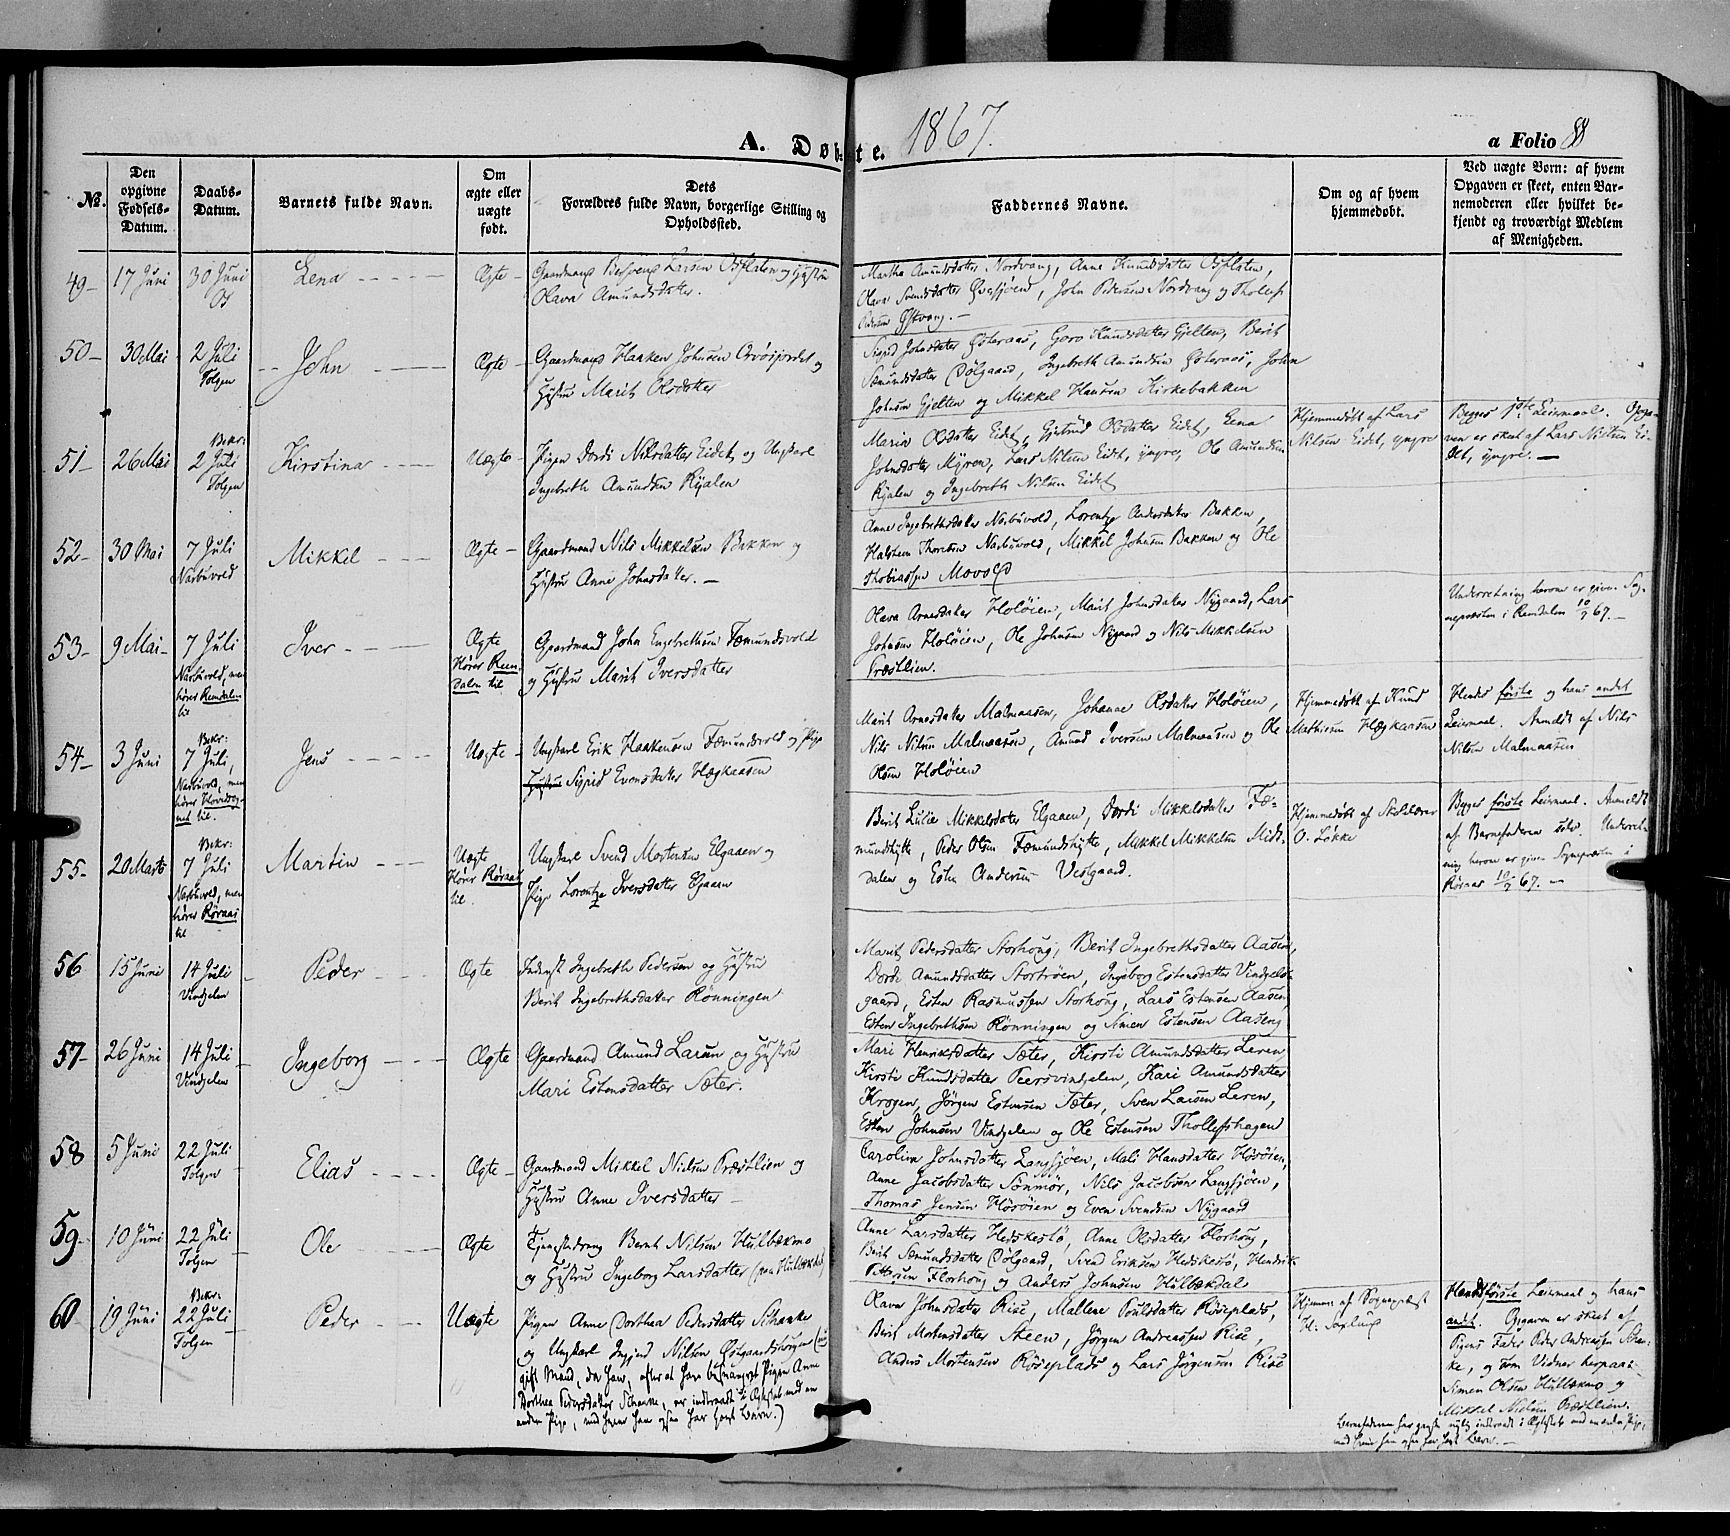 A. Døbte. 1867.
a Folio 88
No.
Den opgivne Fødsels-Datum.
Daabs-Datum.
Barnets fulde Navn.
Om ægte eller uægte født.
Dets Forældres fulde Navn, borgerlige Stilling og Opholdssted.
Faddernes Navne.
Om og af hvem hjemmedøbt.
Ved uægte Børn: af hvem Opgaven er skeet, enten Barnemoderen eller hvilket bekjendt og troværdigt Medlem af Menigheden.
49 17 Juni 30 Juni Os Lena Ægte
Larsen Osflaten og Hustru
Olava Amundsdatter.
Martha Amundsdatter Nordvang, Anne Knudsdatter Osflaten,
Olava Svendsdatter, John Pedersen Nordvang og Thollef
Pedersen Østvang.
50 30 Mai 2 Juli Tolgen John Ægte
Gaardmand Haaken Johnsen og
Hustru Marit Olsdatter
Sigrid Johnsdatter Østeraas, Goro Knudsdatter Gjelten, Berit
Sæmundsdatter Dølgaard, Ingebreth Amundsen Østeraas, John
Johnsen Gjelten og Mikkel Hansen Kirkebakken
51 26 Mai Bekr: 2 Juli Tolgen Kirstina Uægte
Pigen Dordi Nilsdatter Eidet og Ungkarl
Ingebreth Amundsen Ryalen
Maria Olsdatter Eidet, Gjertrud Olsdatter Eidet, Lena
Johnsdatter Myren, Lars Nilsen Eidet, yngre, Ole Amundsen
Ryalen og Ingebreth Nilsen Eidet
Hjemmedøbt af Lars
Nilsen Eidet, yngre
Begges 1ste Leiermaal. Opga-
ven er skeet af Lars Nilsen Ei-
det, yngre.
52 30 Mai 7 Juli Narbuvold Mikkel Ægte
Gaardmand Nils Mikkelsen Bakken og
Hustru Anne Johnsdatter.
Anne Ingebrethsdatter Narbuvold, Lorentze Andersdatter Bakken,
Halstein Thoresen Narbuvold, Mikkel Johnsen Bakken og Ole
Thobiassen Movold
53 9 Mai 7 Juli Narbuvold, men hører Rendalen til Iver Ægte Hører Rendalen til
Gaardmand John Engebrethsen Fæmundsvold
og Hustru Marit Iversdatter
Olava Arnesdatter Holøien, Marit Johnsdatter Nygaard, Lars
Johnsen Holøien, Ole Johnsen Nygaard og Nils Mikkelsen
Præstlien.
Underretning herom er given Sog-
nepræsten i Rendalen 10/7 67.
54 3 Juni Bekr: 7 Juli, Narbuvold, men hører Hovedsognet til. Jens Uægte
Ungkarl Erik Haakensen Fæmundsvold og Pige
Hustru Sigrid Evensdatter Hægkaasen
Marit Arnesdatter Malmaasen, Johanne Olsdatter Holøien,
Nils Nilsen Malmaasen, Amund Iversen Malmaasen og Ole
Olsen Holøien
Hjemmedøbt af Knud
Mathiesen
Hendes første og hans andet
Leiermaal. Anmeldt af Nils
Nilsen Malmaasen
55 20 Marts Bekr: 7 Juli Narbuvold, men hører Røraas til Martin Uægte Hører Røraas til.
Ungkarl Svend Mortensen Elgaaen og
Pige Lorentze Iversdatter Elgaaen
Berit Lucie Mikkelsdatter Elgaaen, Dordi Mikkelsdatter Fæ-
mundshytte, Peder Olsen Fæmundshytte, Mikkel Mikkelsen Midt-
dalen og Esten Andersen Vestgaard.
Hjemmedøbt af Skolelærer
O. Løkke
Begges første Leiermaal. Anmeldt
af Barnefaderen selv. Underret-
ning herom er given Sognepræsten i
Røraas 10/7 67.
56 15 Juni 14 Juli Vingelen Peder Ægte
Inderst Ingebreth Pedersen og Hustru
Berit Ingebrethsdatter Rønningen
Marit Pedersdatter Storhoug, Berit Ingebrethsdatter Aasen,
Dordi Amundsdatter Stortrøen, Ingeborg Estensdatter Vindgels-
gaard, Esten Rasmussen Storhoug, Lars Estensen Aasen,
Esten Ingebrethsen Rønningen og Simen Estensen Aaseng
57 26 Juni 14 Juli Vingelen Ingeborg Ægte
Gaardmand Amund Larsen og Hustru
Mari Estensdatter Sæter.
Mari Henriksdatter Sæter, Kirsti Amundsdatter Leren,
Kirsti Knudsdatter Peersvindgelen, Kari Amundsdatter
Krogen, Jørgen Estensen Sæter, Sven Larsen Leren,
Esten Johnsen Vindgelen og Ole Estensen Thollefshagen
58 5 Juni 22 Juli Tolgen Elias Ægte
Gaardmand Mikkel Nielsen Præstlien og
Hustru Anne Iversdatter
Caroline Johnsdatter Langsjøen, Mali Hansdatter Hosøien,
Anne Jacobsdatter Sønmør, Nils Jacobsen Langsjøen,
Thomas Jensen Hosøien og Even Svendsen Nygaard
59 10 Juni 22 Juli Tolgen Ole Ægte
Tjenestedreng Bernt Nilsen Hulbækmo
og Hustru Ingeborg Larsdatter (paa Hulbækdal)
Anne Larsdatter Hedskestø, Anne Olsdatter Florhoug,
Berit Sæmundsdatter Dølgaard, Svend Eriksen Hedskestø, Hendrik
Pettersen Florhoug og Anders Johnsen Hulbækdal
60 19 Juni Bekr: 22 Juli Tolgen Peder Uægte
Pigen Anne Dorthea Pedersdatter Schanke
og Ungkarl Ingjerd Nilsen
gift Mand, da han, efter at have besvangret Pigen Anne
Dorthea Pedersdatter Schanke, er indtraadt i Ægteskab med en
anden Pige, med hvem han ogsaa har havt Barn.)
Olava Johnsdatter Rise, Mallene Poulsdatter Røseplads,
Berit Mortensdatter Steen, Jørgen Andreassen Rise,
Anders Mortensen Røseplads og Lars Jørgensen Rise
Hjemmed. af Sognepræst
Hendes første Leiermaal og hans
andet. Opgaven er skeet af
Pigens Fader Peder Andreassen Schan-
ke, og som Vidner herpaa
Simen Olsen Hulbækmo og
Mikkel Nielsen Præstlien.
Barnefaderen har ganske nylig indtraadt i Ægteskab med en anden Pige,
med hvem han ogsaa har havt Barn.